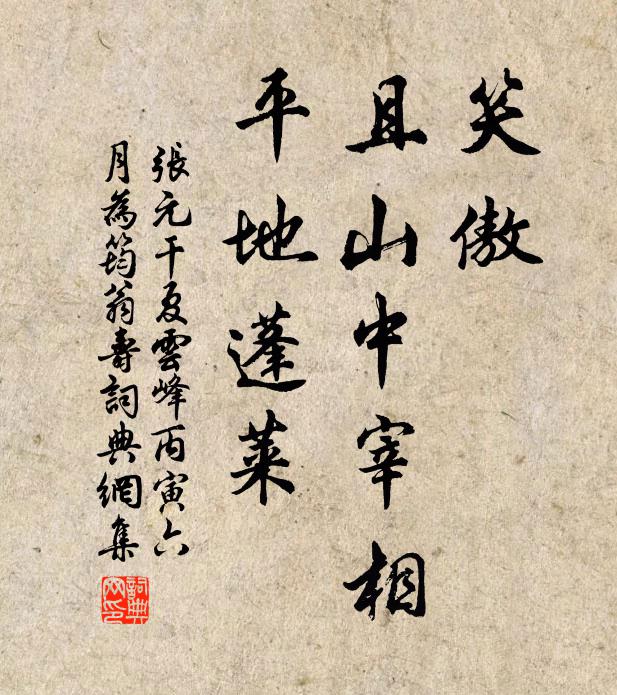 笑傲
且山中宰相
平地蓬萊
張元干夏雲峰丙寅六
月為筠翁壽詞典網集
詞典
网印